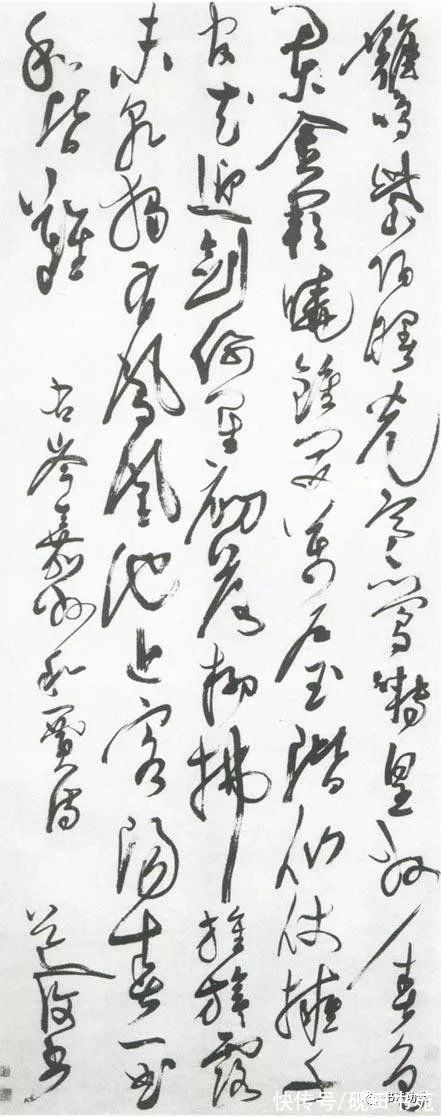 雞鳴紫陌曙光寒鶯囀皇州春色
闌金闕曉鐘開萬户玉階仙仗擁千
官花迎劍佩星初落柳拂旌旗露
未乾獨有鳳凰池上客陽春一曲
和皆難
右岑嘉州和賈詩
道復書
快传号/砚田书苑